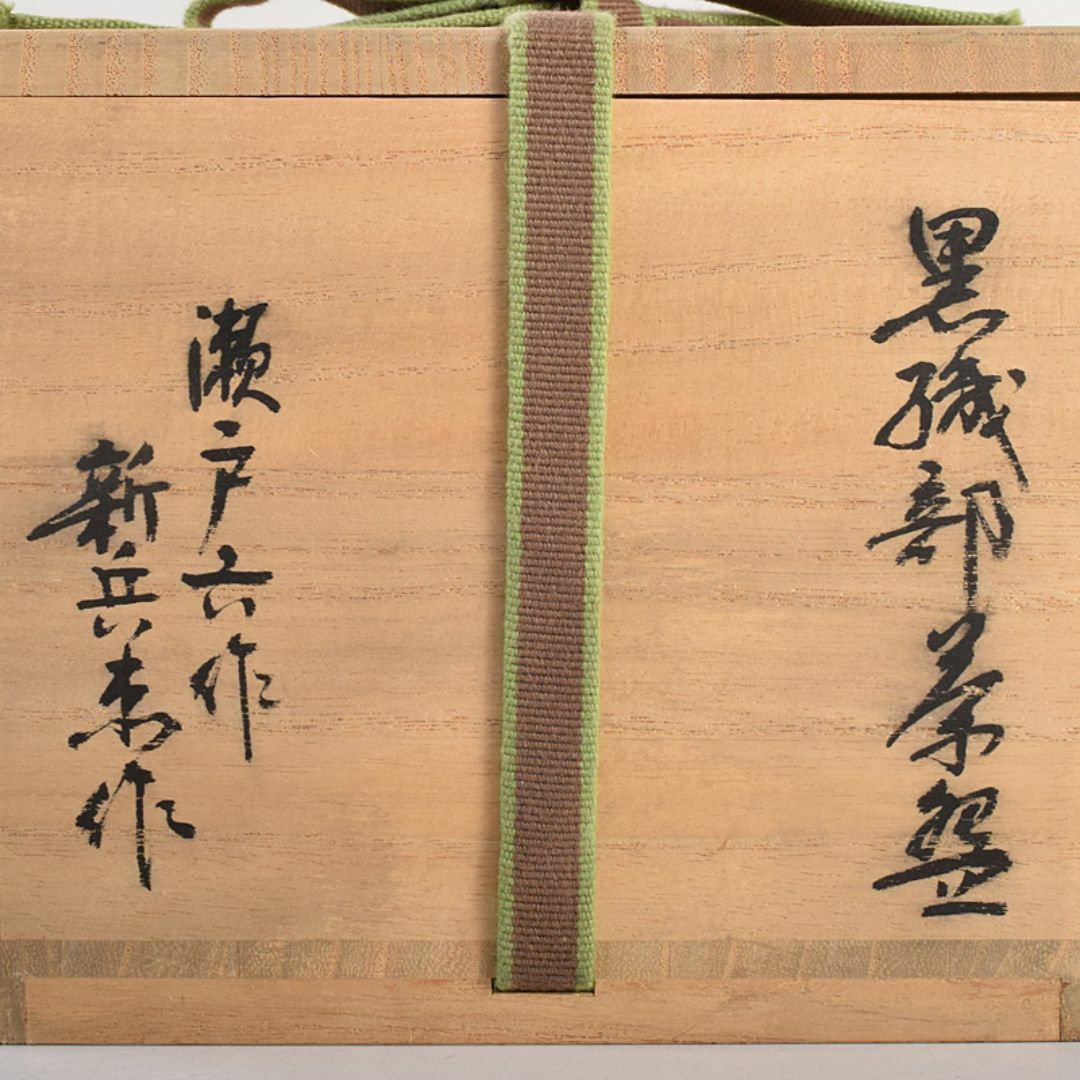 黒織部茶盌
瀬戸六作
新兵衛作